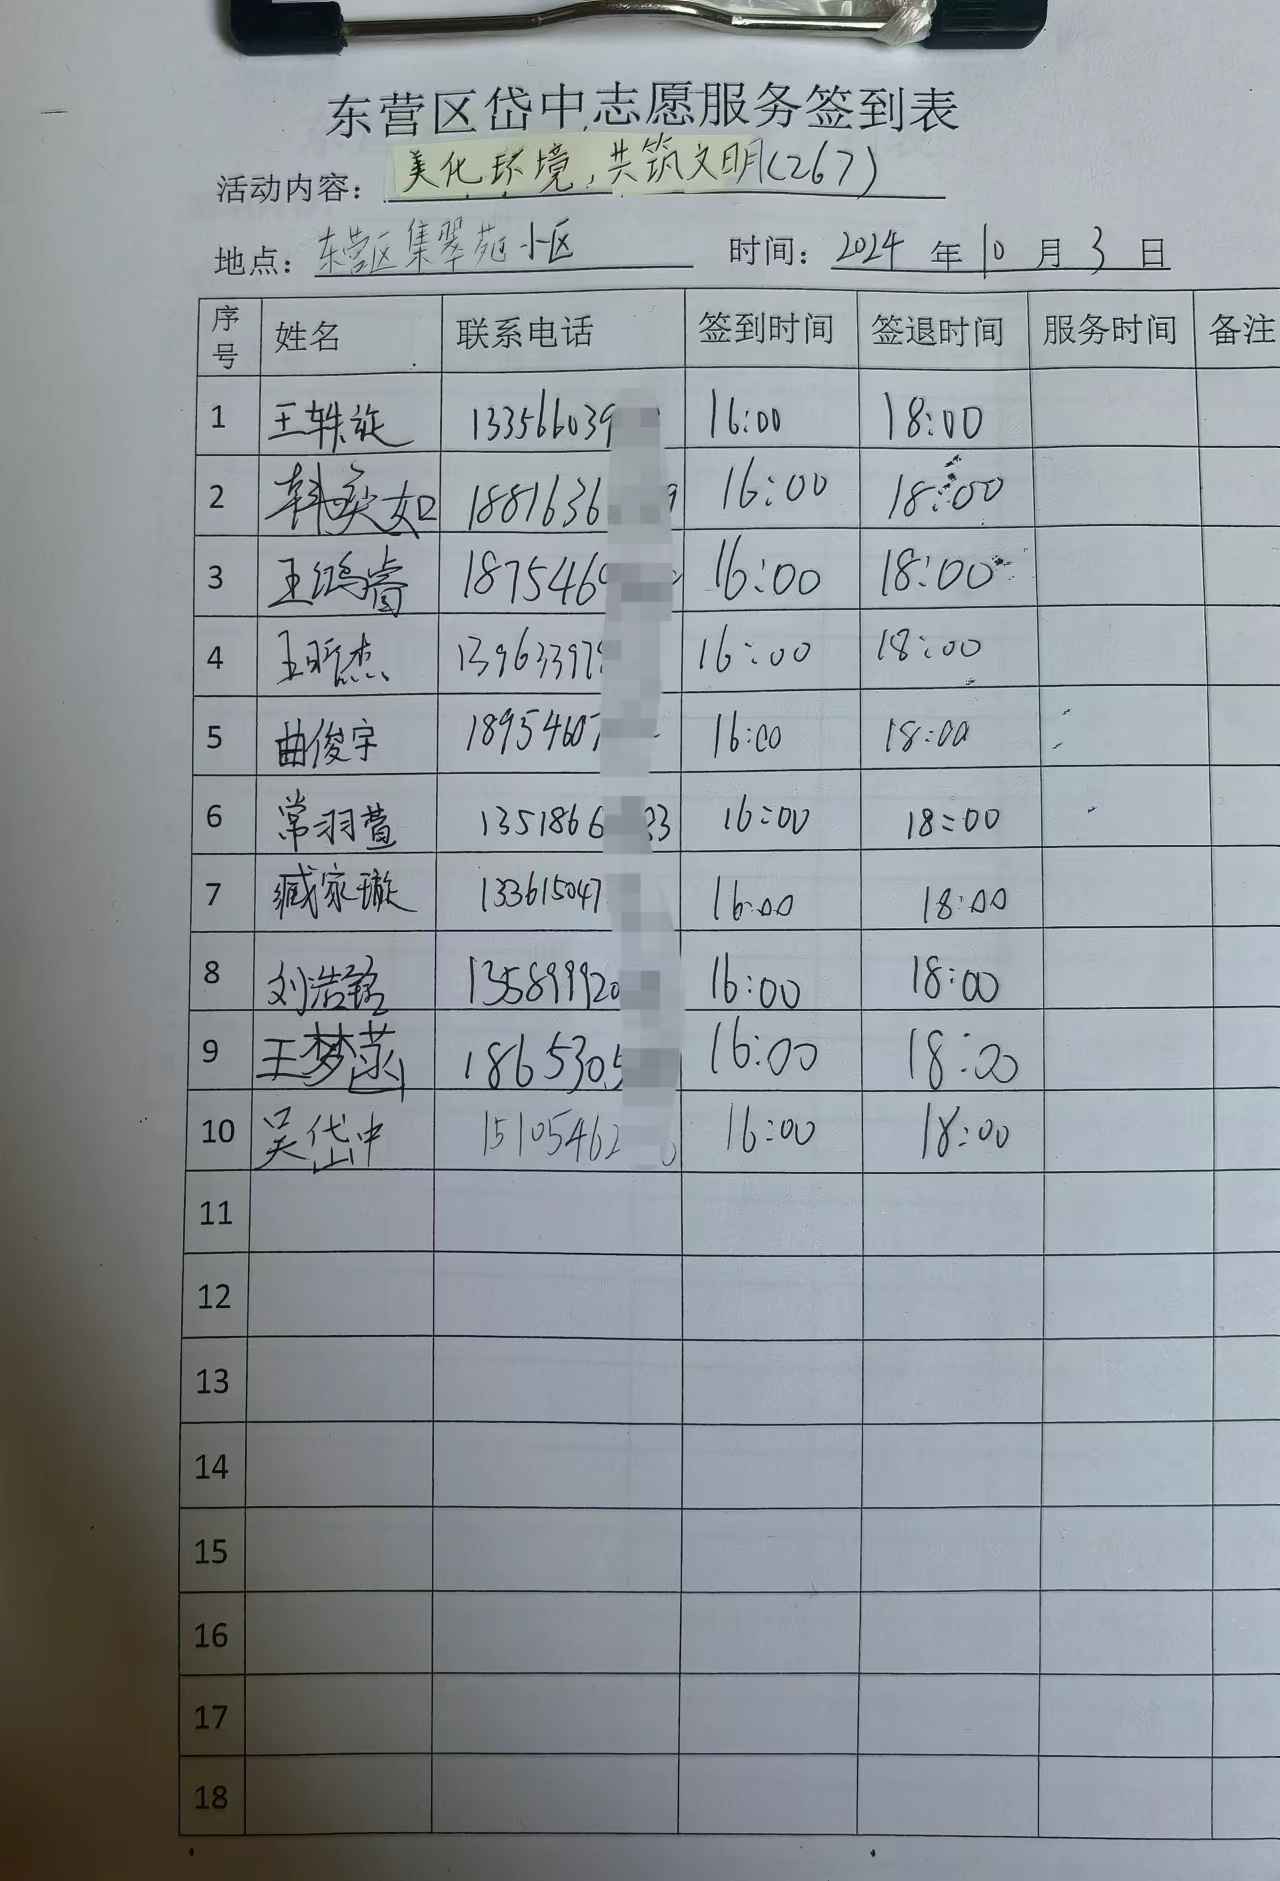 东营区岱中志愿服务签到表
活动内容：美化环境，共筑文明(267)
地点：东营区集翠苑小区 时间：2024 年 10 月 3 日
序号 姓名 联系电话 签到时间 签退时间 服务时间 备注
1 王轶旋 133566039 16:00 18:00
2 韩奕如 1881636 9 16:00 18:00
3 王鸿睿 1875469 16:00 18:00
4 王昕杰 13963397 16:00 18:00
5 曲俊宇 18954607 16:00 18:00
6 常羽萱 1351866 23 16:00 18:00
7 臧家璇 133615047 16:00 18:00
8 刘浩铭 135899920 16:00 18:00
9 王梦菡 1865305 16:00 18:00
10 吴岱中 15105462 16:00 18:00
11
12
13
14
15
16
17
18